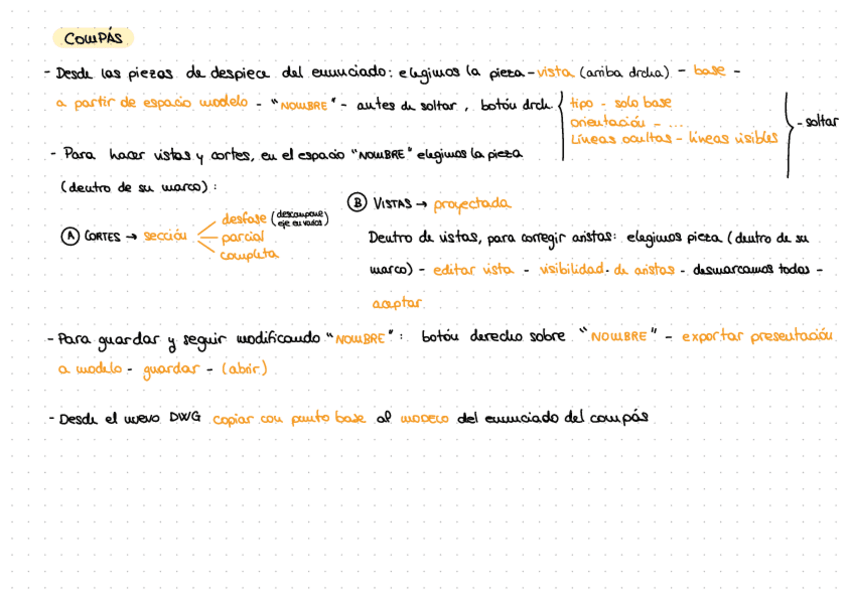 COMPÁS
- Desde las piezas de despiece del enunciado: elegimos la pieza - vista (arriba drcha) - base -
a partir de espacio modelo - "NOMBRE" - antes de soltar, botón drch. { tipo - solo base
orientación - ...
Líneas ocultas - líneas visibles } - soltar
- Para hacer vistas y cortes, en el espacio "NOMBRE" elegimos la pieza
(dentro de su marco):
Ⓐ CORTES → sección
desfase (descompone eje en varios)
parcial
completa
Ⓑ VISTAS → proyectada
Dentro de vistas, para corregir aristas: elegimos pieza (dentro de su
marco) - editar vista - visibilidad de aristas - desmarcamos todas -
aceptar
- Para guardar y seguir modificando "NOMBRE": botón derecho sobre "NOMBRE" - exportar presentación
a modelo - guardar - (abrir)
- Desde el nuevo DWG copiar con punto base al modelo del enunciado del compás